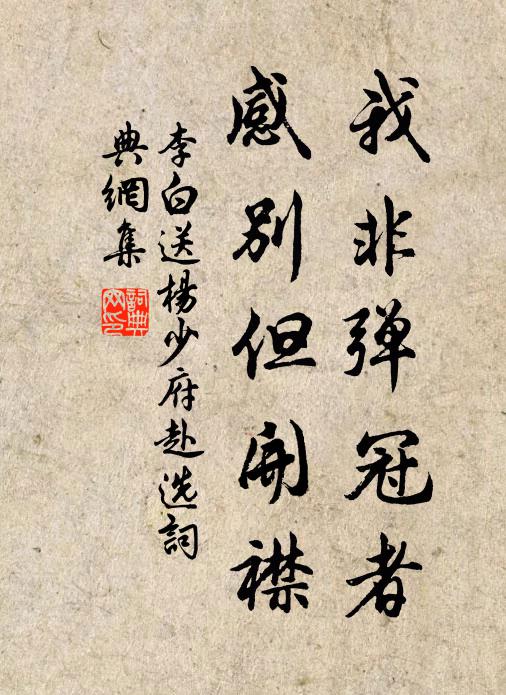 我非弹冠者
感别但開襟
李白送楊少府赴选詞
典網集
詞典
网印